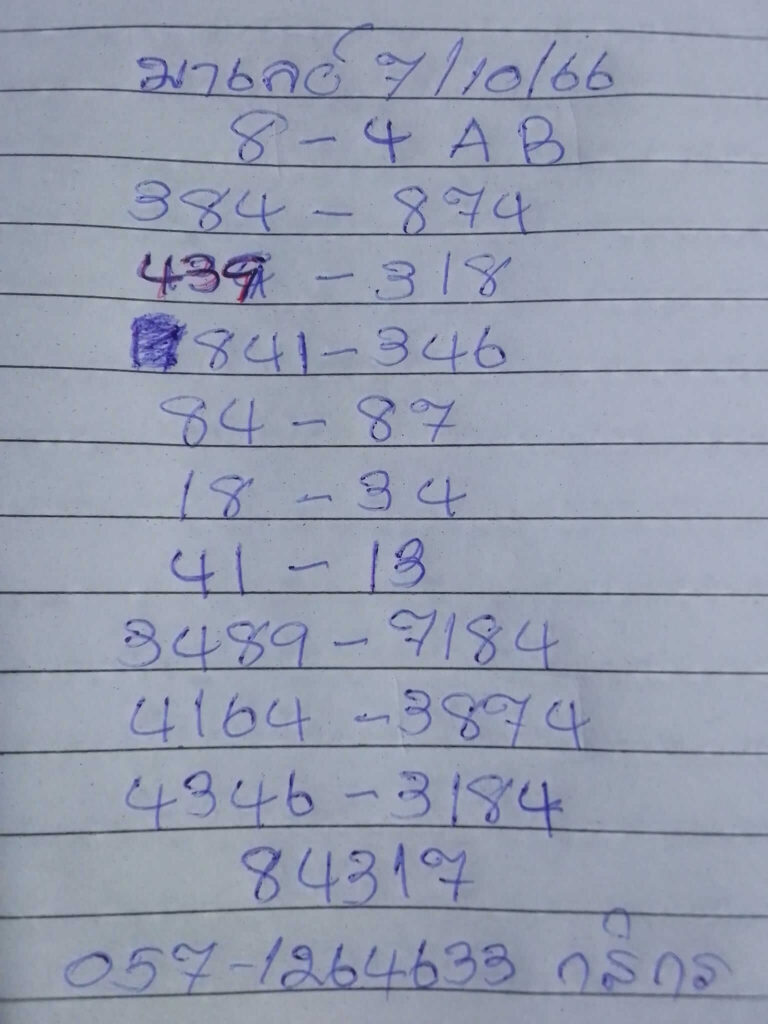 มาเลย์ 7/10/66
8 - 4 A B
384 - 874
439 - 318
841 - 346
84 - 87
18 - 34
41 - 13
3489 - 7184
4164 - 3874
4346 - 3184
84317
057-1264633 กสิกร